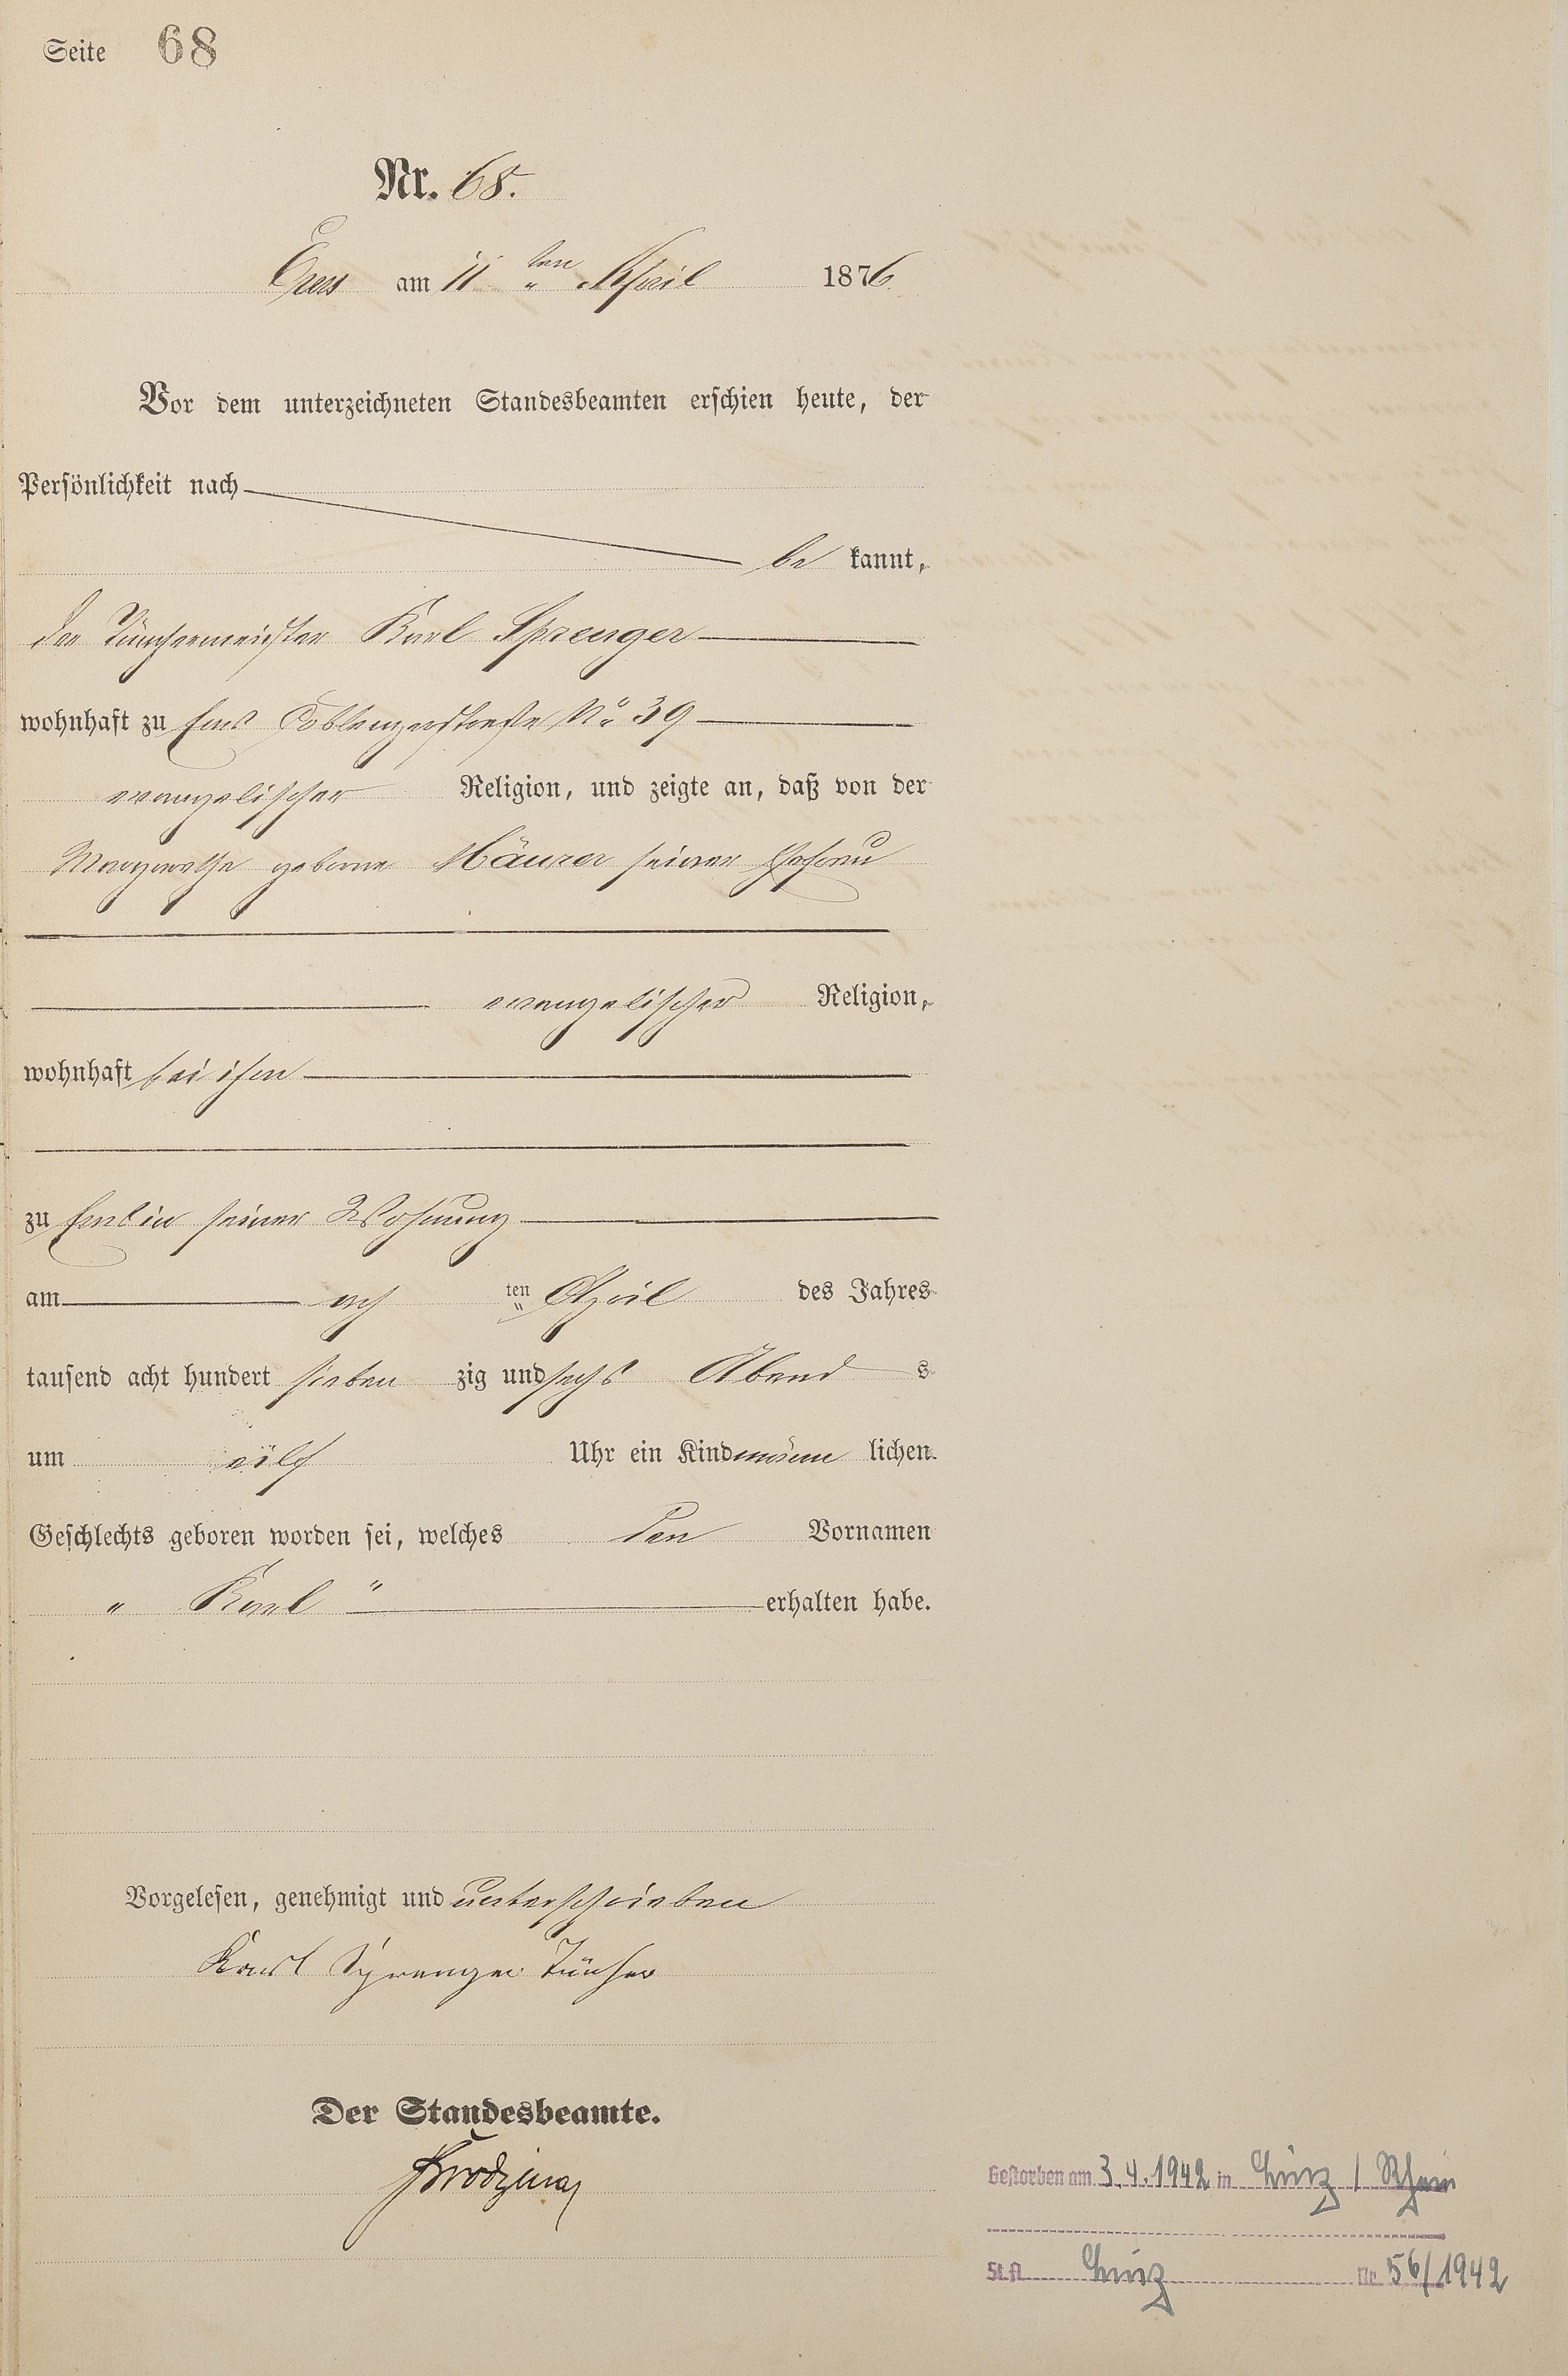 Seite 68
Nr. 68.
Ems am 11 ten April 1876
Vor dem unterzeichneten Standesbeamten erschien heute, der
Persönlichkeit nach
be kannt,
der Tünchermeister Karl Sprenger
wohnhaft zu Ems Coblenzerstraße No 39
evangelischer Religion, und zeigte an, daß von der
Margarethe geborne Mäurer seiner Ehefrau
evangelischer Religion,
wohnhaft bei ihm
zu Ems in seiner Wohnung
am ten April des Jahres
tausend acht hundert sieben zig und sechs Abend s
um eilf Uhr ein Kind männ lichen
Geschlechts geboren worden sei, welches den Vornamen
" Karl " erhalten habe.
Vorgelesen, genehmigt und unterschrieben
Karl Sprenger Tüncher
Der Standesbeamte.
Gestorben am 3.4.1942 in Linz / Rhein
St.A. Linz Nr. 56/1942